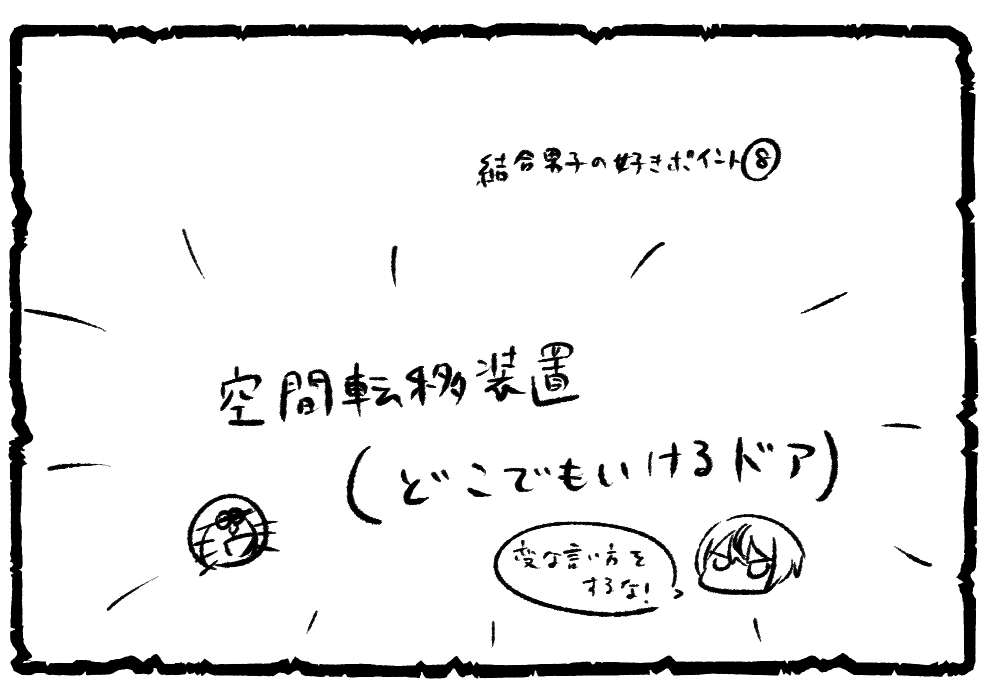 結合男子の好きポイント⑧
空間転移装置
(どこでもいけるドア)
変な言い方を
するな!